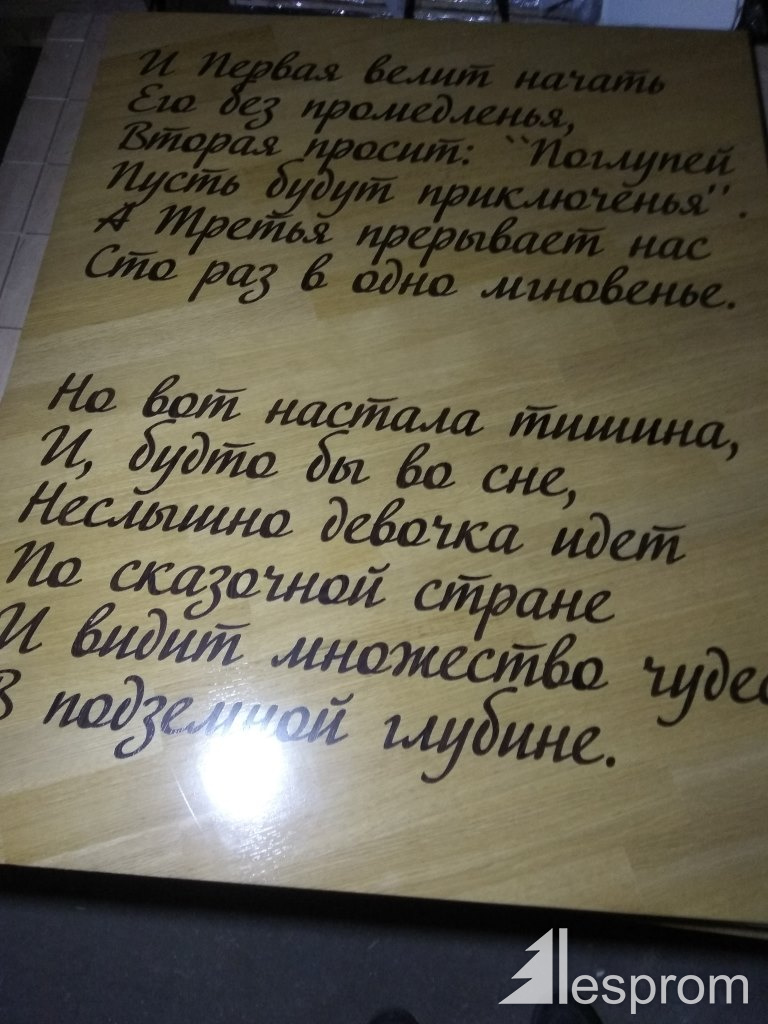 И Первая велит начать
Его без промедленья,
Вторая просит: ``Поглупей
Пусть будут приключенья''.
А Третья прерывает нас
Сто раз в одно мгновенье.
Но вот настала тишина,
И, будто бы во сне,
Неслышно девочка идет
По сказочной стране
И видит множество чудес
В подземной глубине.
lesprom